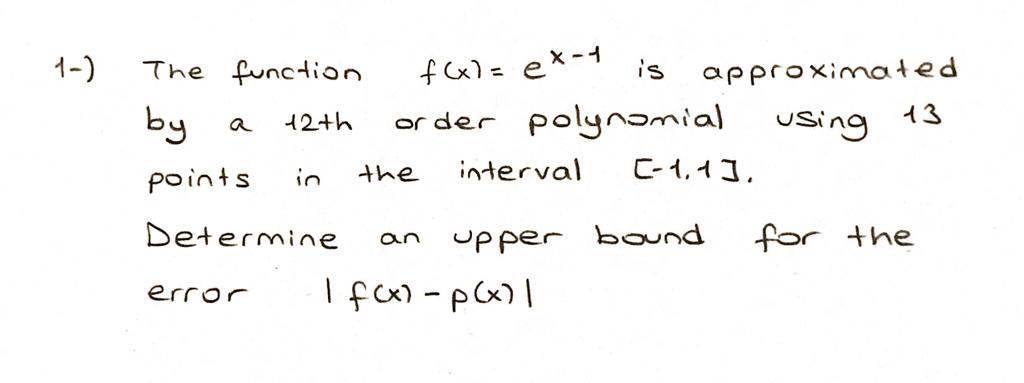 1-) The function f(x) = e^x-1 is approximated
by a 12th order polynomial using 13
points in the interval [-1,1].
Determine an upper bound for the
error |f(x) - p(x)|